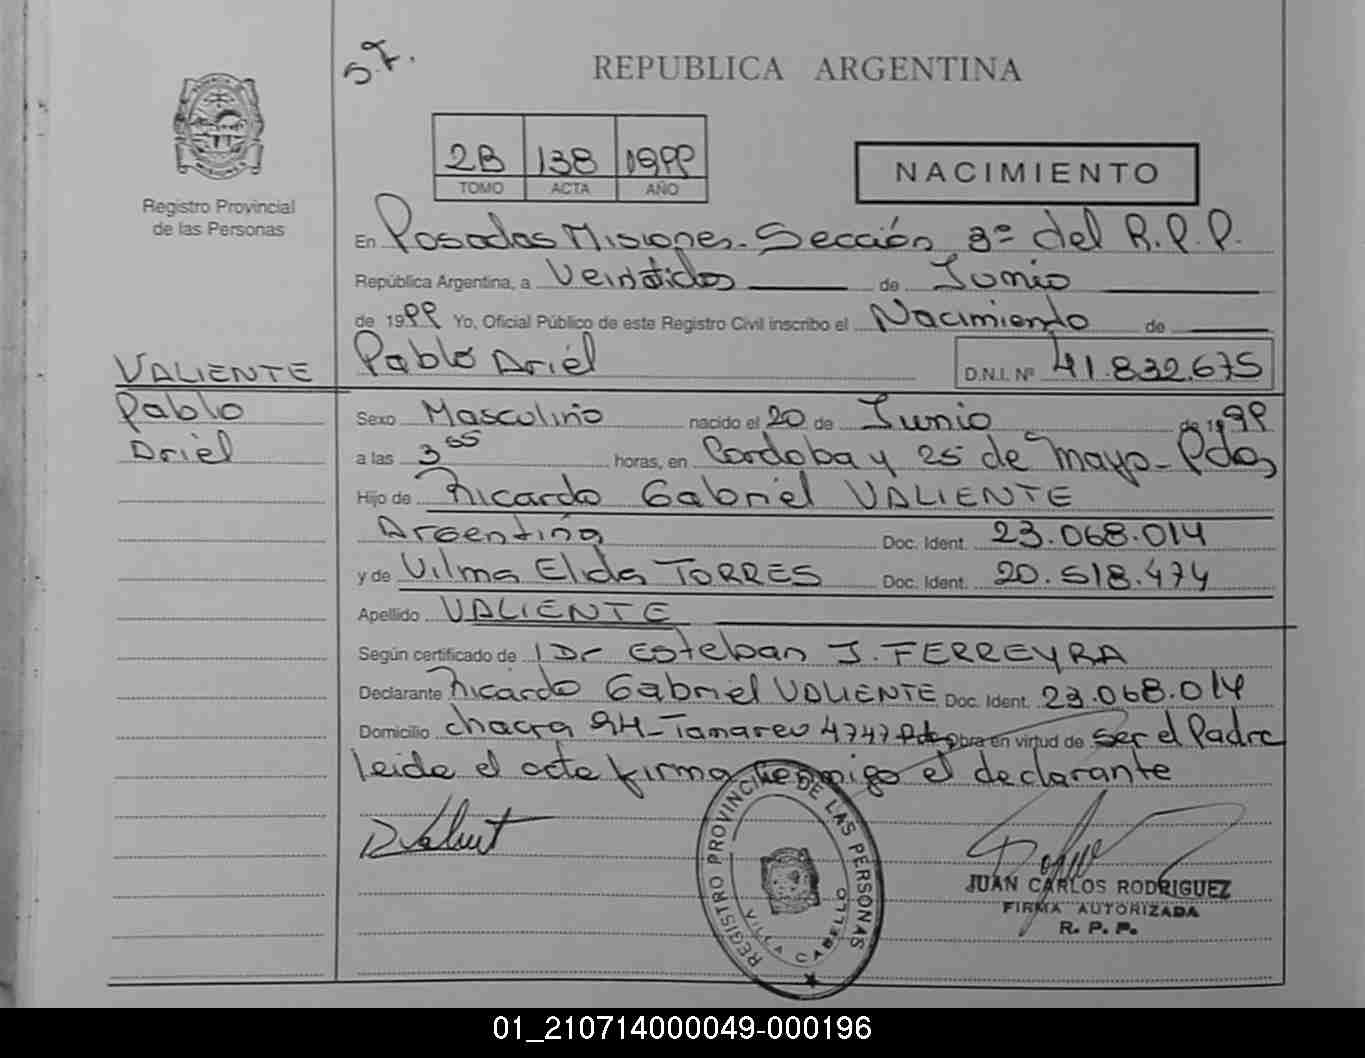 S.F.
REPUBLICA ARGENTINA
Registro Provincial
de las Personas
2B 138 1999
TOMO ACTA AÑO
NACIMIENTO
En Posadas Misiones. Sección 3º del R.P.P.
República Argentina, a Veintidos de Junio
de 1999 Yo, Oficial Público de este Registro Civil inscribo el Nacimiento de
Pablo Ariel D.N.I. Nº 41.832.675
VALIENTE
Pablo
Ariel
Sexo Masculino nacido el 20 de Junio de 1999
a las 3 55 horas, en Cordoba y 25 de Mayo - Pdas
Hijo de Ricardo Gabriel VALIENTE
Argentina Doc. Ident. 23.068.014
y de Vilma Elida TORRES Doc. Ident. 20.518.474
Apellido VALIENTE
Según certificado de Dr Esteban J. FERREYRA
Declarante Ricardo Gabriel VALIENTE Doc. Ident. 23.068.014
Domicilio chacra 94 - 4747 Pdas Obra en virtud de ser el Padre
leida el acta firma conmigo el declarante
REGISTRO PROVINCIAL DE LAS PERSONAS
VILLA CABELLO
JUAN CARLOS RODRIGUEZ
FIRMA AUTORIZADA
R. P. P.
01_210714000049-000196